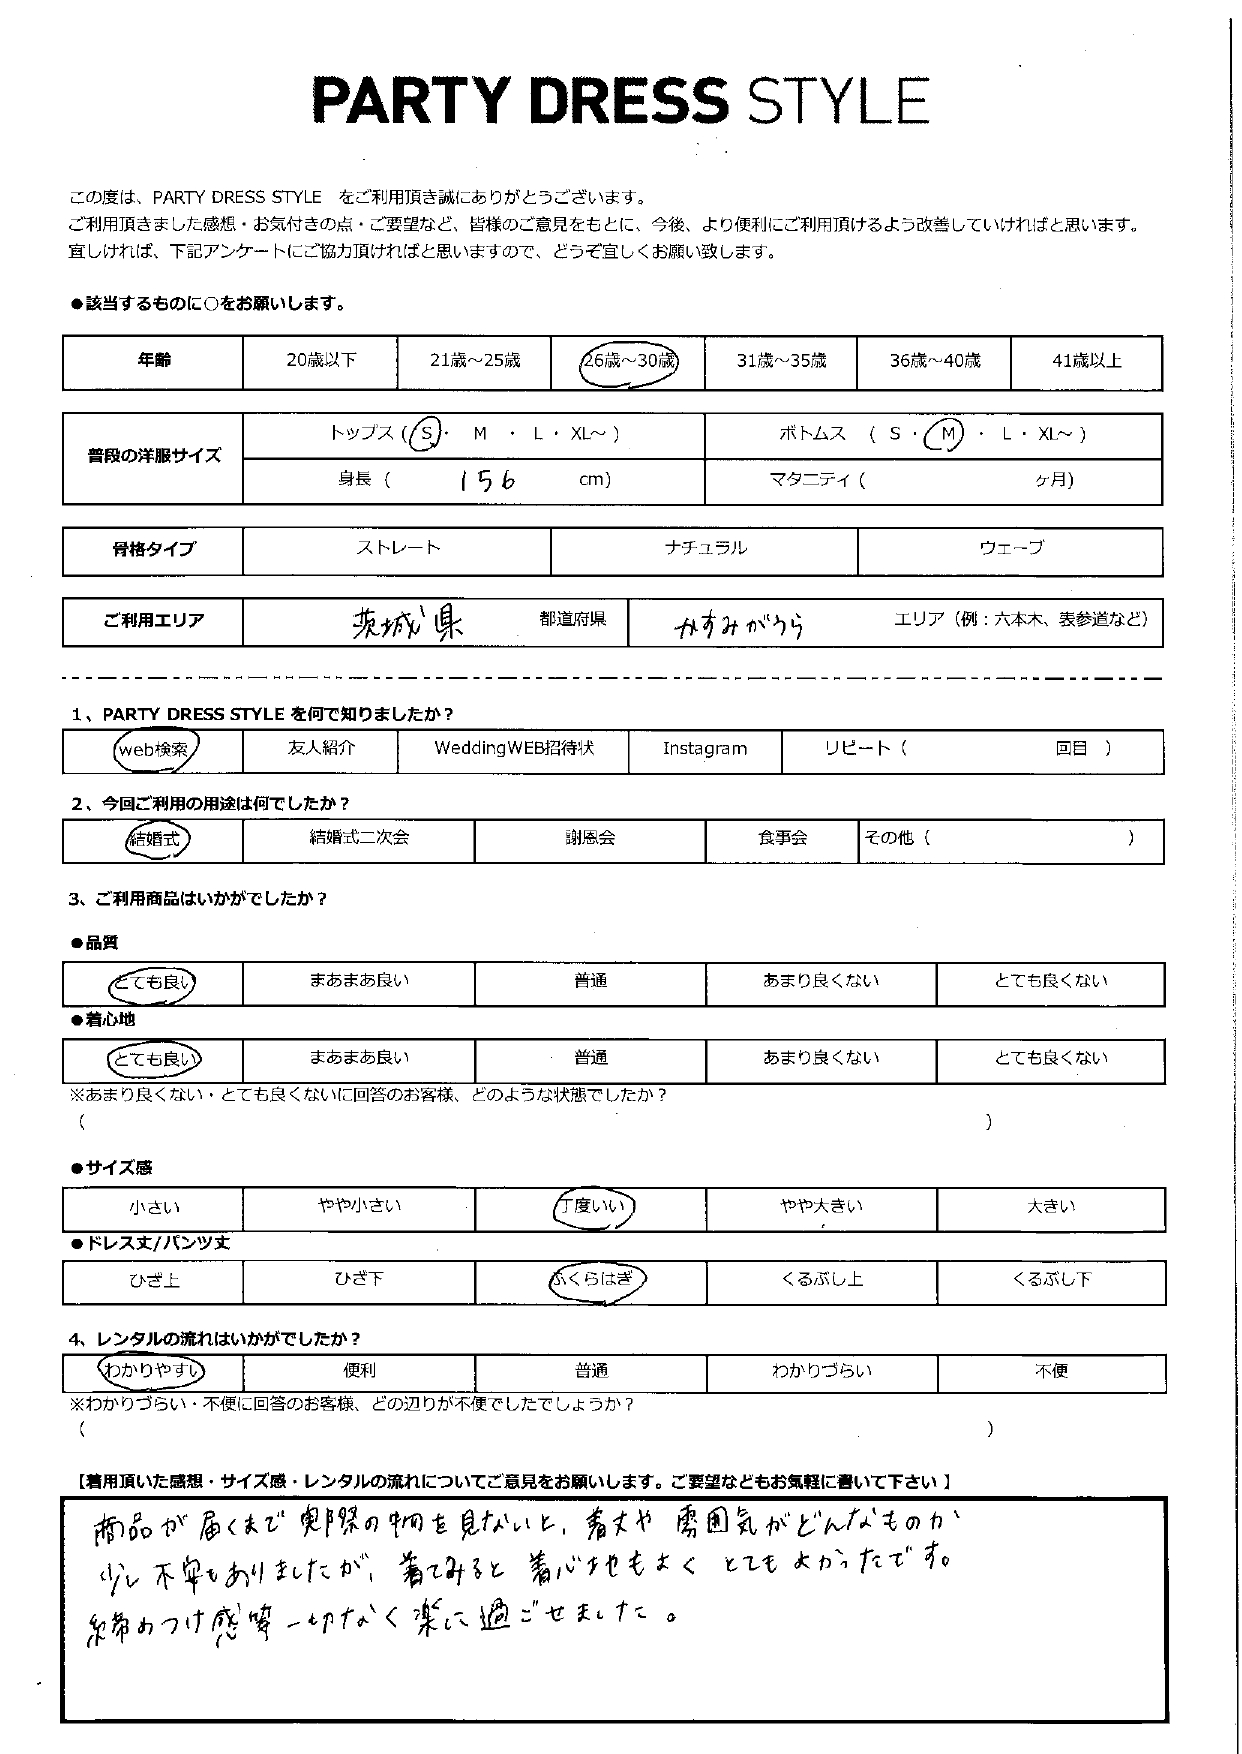 PARTY DRESS STYLE
この度は、PARTY DRESS STYLE をご利用頂き誠にありがとうございます。
ご利用頂きました感想・お気付きの点・ご要望など、皆様のご意見をもとに、今後、より便利にご利用頂けるよう改善していければと思います。
宜しければ、下記アンケートにご協力頂ければと思いますので、どうぞ宜しくお願い致します。
●該当するものに○をお願いします。
年齢 20歳以下 21歳～25歳 26歳～30歳 31歳～35歳 36歳～40歳 41歳以上
トップス ( S ・ M ・ L ・ XL～ ) ボトムス ( S ・ M ・ L ・ XL～ )
普段の洋服サイズ
身長 ( 156 cm) マタニティ ( ヶ月)
骨格タイプ ストレート ナチュラル ウェーブ
ご利用エリア 茨城県 都道府県 かすみがうら エリア（例：六本木、表参道など）
1、PARTY DRESS STYLE を何で知りましたか？
web検索 友人紹介 WeddingWEB招待状 Instagram リピート ( 回目 )
2、今回ご利用の用途は何でしたか？
結婚式 結婚式二次会 謝恩会 食事会 その他 ( )
3、ご利用商品はいかがでしたか？
●品質
とても良い まあまあ良い 普通 あまり良くない とても良くない
●着心地
とても良い まあまあ良い 普通 あまり良くない とても良くない
※あまり良くない・とても良くないに回答のお客様、どのような状態でしたか？
( )
●サイズ感
小さい やや小さい 丁度いい やや大きい 大きい
●ドレス丈/パンツ丈
ひざ上 ひざ下 ふくらはぎ くるぶし上 くるぶし下
4、レンタルの流れはいかがでしたか？
わかりやすい 便利 普通 わかりづらい 不便
※わかりづらい・不便に回答のお客様、どの辺りが不便でしたでしょうか？
( )
【着用頂いた感想・サイズ感・レンタルの流れについてご意見をお願いします。ご要望などもお気軽に書いて下さい】
商品が届くまで実際の物を見ないと、着丈や雰囲気がどんなものか
少し不安もありましたが、着てみると着心地もよくとてもよかったです。
締めつけ感等一切なく楽に過ごせました。